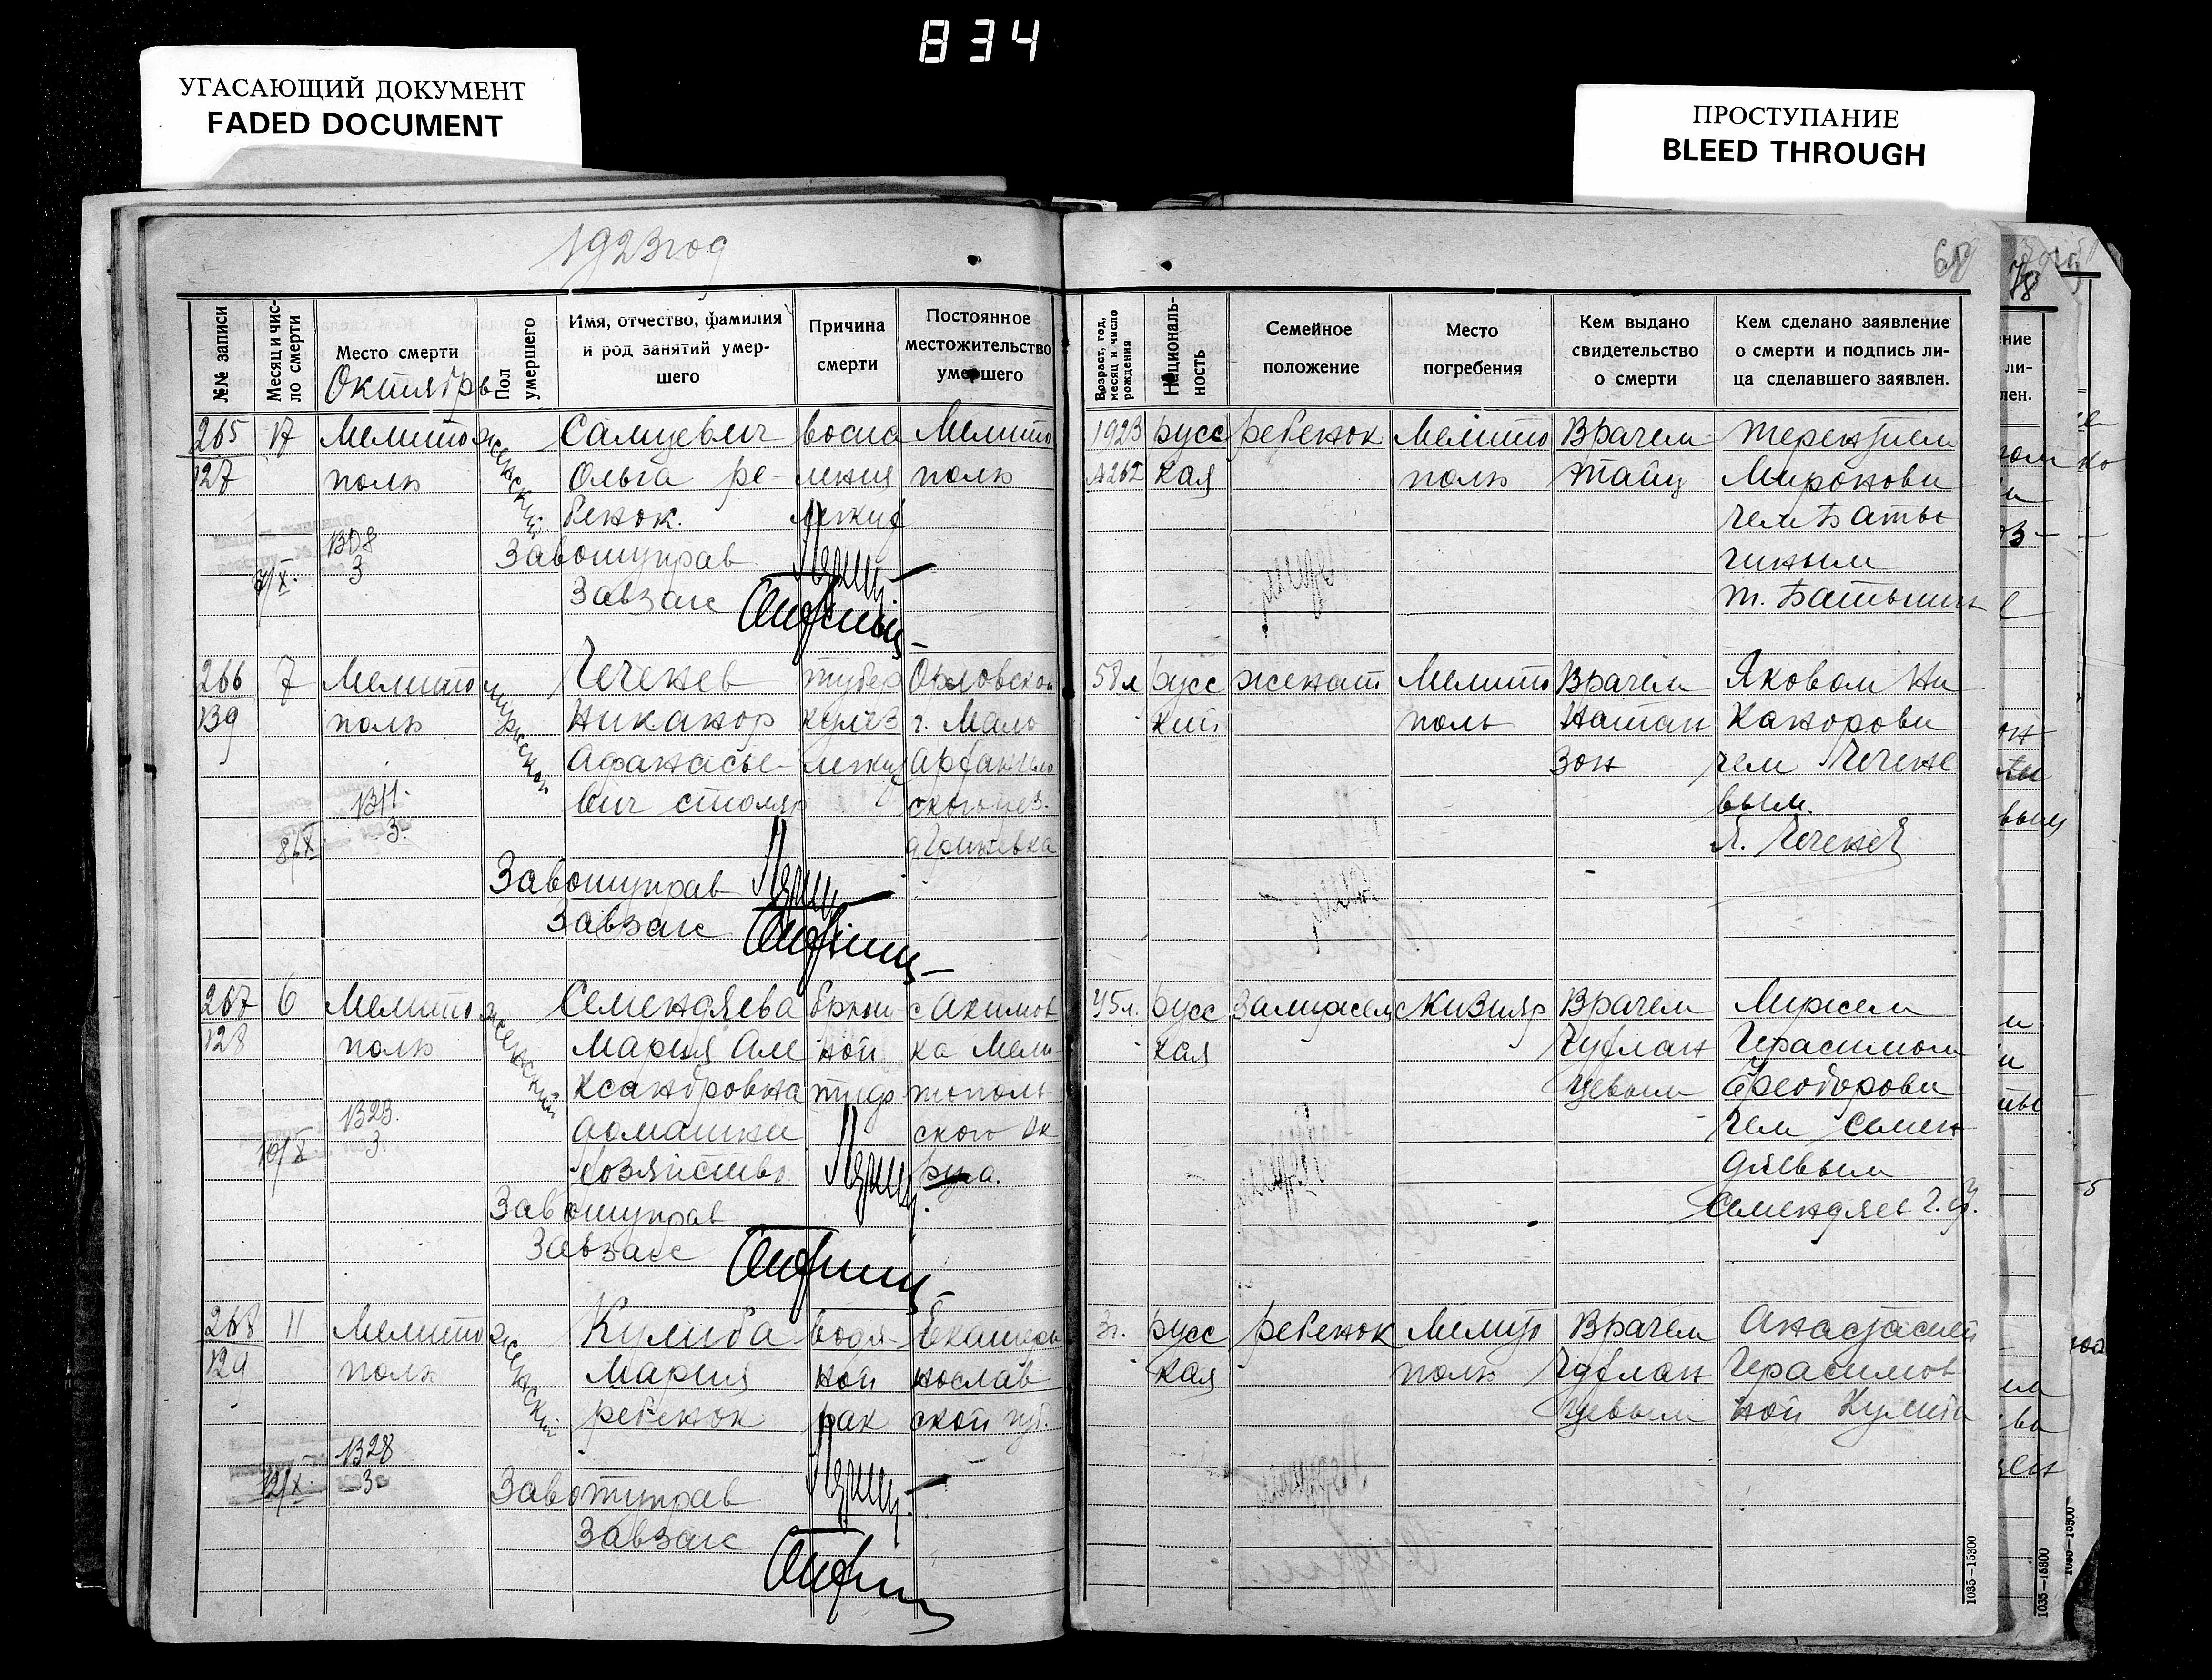 834
УГАСАЮЩИЙ ДОКУМЕНТ
FADED DOCUMENT
ПРОСТУПАНИЕ
BLEED THROUGH
1923 год
№№ записи
Месяц и чис-
ло смерти
Место смерти
Октябрь
Пол
умершего
Имя, отчество, фамилия
и род занятий умер-
шего
Причина
смерти
Постоянное
местожительство
умершего
Возраст, год,
месяц и число
рождения
Националь-
ность
Семейное
положение
Место
погребения
Кем выдано
свидетельство
о смерти
Кем сделано заявление
о смерти и подпись ли-
ца сделавшего заявлен.
265
127
Мелито
поль
женский
Ольга ре-
бенок.
воспа
ления
легких
Мелито
поль
1923
русс
кая
ребенок
Мелито
поль
Врачем
Тайц
Терентием
Миронови
чем Баты
гиным
Т. Батыгин
1308
3
Завотуправ
Завзагс
266
139
7
Мелито
поль
мужской
Чеченев
Никанор
Афанасье-
вич столяр
тубер
кулез
легких
Орловской
г. Мало
58 л
русс
кий
женат
Мелито
поль
Врачем
Натан
зон
Яковом Ни
канорови
чем Чечене
вым.
Я. Чеченев
1311.
3.
8/X
Завотуправ
Завзагс
267
128
6
Мелито
поль
женский
Семендяева
Мария Але
ксандровна
домашнее
хозяйство
брюш
ной
тиф
с Акимов
ка Мели
тополь
ского Ок
руга.
45 л.
русс
кая
замужем
Кизияр
Врачем
Гуфлан
цевым
Мужем
Герасимом
Феодорови
чем Семен
дяевым
Семендяев Г. Ф.
1323.
3.
10/X
Завотуправ
Завзагс
268
129
11
Мелито
поль
женский
Кулиба
Мария
ребенок
водя-
ной
рак
Екатери
нослав
ской губ.
3 г.
русс
кая
ребенок
Мелито
поль
Врачем
Гуфлан
цевым
Анастасией
Герасимов
ной Кулиба
1328
3
12/X.
Завотуправ
Завзагс
1035—15300
1035—15300